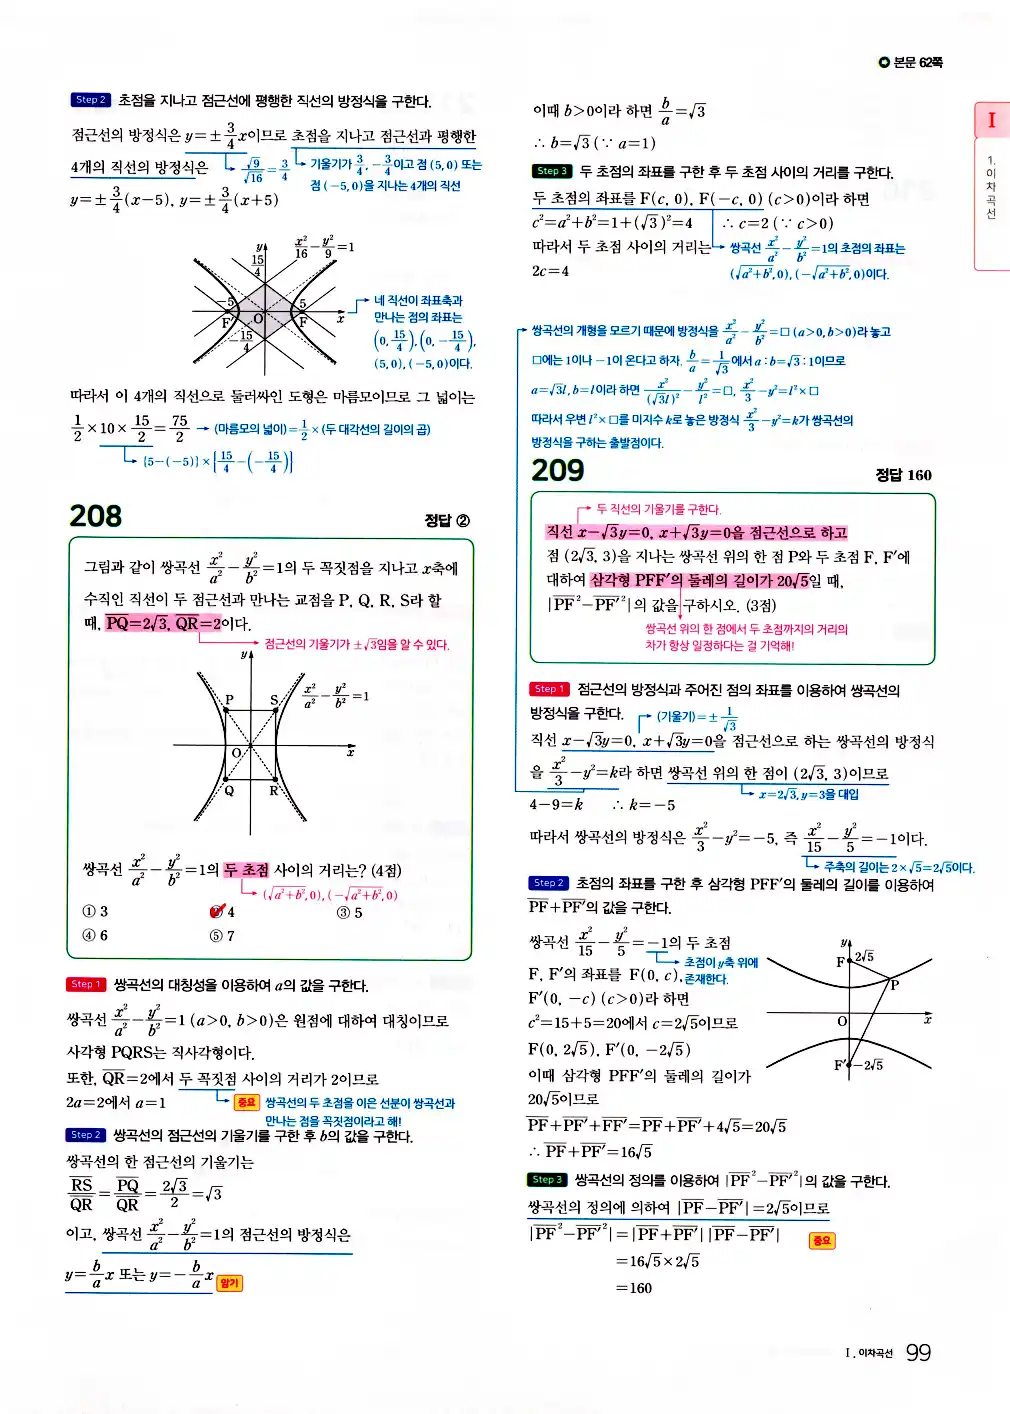 본문 62쪽
Step 2 초점을 지나고 점근선에 평행한 직선의 방정식을 구한다.
점근선의 방정식은 y=±3/4x이므로 초점을 지나고 점근선과 평행한
4개의 직선의 방정식은
√9/√16=3/4
기울기가 3/4, -3/4이고 점 (5, 0) 또는
점 (-5, 0)을 지나는 4개의 직선
y=±3/4(x-5), y=±3/4(x+5)
y
x²/16-y²/9=1
15/4
-5
5
F′
O
F
x
-15/4
네 직선이 좌표축과
만나는 점의 좌표는
(0, 15/4), (0, -15/4),
(5, 0), (-5, 0)이다.
따라서 이 4개의 직선으로 둘러싸인 도형은 마름모이므로 그 넓이는
1/2×10×15/2=75/2
(마름모의 넓이)=1/2×(두 대각선의 길이의 곱)
{5-(-5)}×{15/4-(-15/4)}
208
정답 ②
그림과 같이 쌍곡선 x²/a²-y²/b²=1의 두 꼭짓점을 지나고 x축에
수직인 직선이 두 점근선과 만나는 교점을 P, Q, R, S라 할
때, PQ=2√3, QR=2이다.
점근선의 기울기가 ±√3임을 알 수 있다.
y
P
S
x²/a²-y²/b²=1
O
x
Q
R
쌍곡선 x²/a²-y²/b²=1의 두 초점 사이의 거리는? (4점)
(√a²+b², 0), (-√a²+b², 0)
① 3
② 4
③ 5
④ 6
⑤ 7
Step 1 쌍곡선의 대칭성을 이용하여 a의 값을 구한다.
쌍곡선 x²/a²-y²/b²=1 (a>0, b>0)은 원점에 대하여 대칭이므로
사각형 PQRS는 직사각형이다.
또한, QR=2에서 두 꼭짓점 사이의 거리가 2이므로
2a=2에서 a=1
중요 쌍곡선의 두 초점을 이은 선분이 쌍곡선과
만나는 점을 꼭짓점이라고 해!
Step 2 쌍곡선의 점근선의 기울기를 구한 후 b의 값을 구한다.
쌍곡선의 한 점근선의 기울기는
RS/QR=PQ/QR=2√3/2=√3
이고, 쌍곡선 x²/a²-y²/b²=1의 점근선의 방정식은
y=b/a x 또는 y=-b/a x 암기
이때 b>0이라 하면 b/a=√3
∴ b=√3 (∵ a=1)
Step 3 두 초점의 좌표를 구한 후 두 초점 사이의 거리를 구한다.
두 초점의 좌표를 F(c, 0), F(-c, 0) (c>0)이라 하면
c²=a²+b²=1+(√3)²=4
∴ c=2 (∵ c>0)
따라서 두 초점 사이의 거리는
2c=4
쌍곡선 x²/a²-y²/b²=1의 초점의 좌표는
(√a²+b², 0), (-√a²+b², 0)이다.
쌍곡선의 개형을 모르기 때문에 방정식을 x²/a²-y²/b²=□ (a>0, b>0)라 놓고
□에는 1이나 -1이 온다고 하자. b/a=1/√3에서 a : b=√3 : 1이므로
a=√3l, b=l이라 하면 x²/(√3l)²-y²/l²=□, x²/3-y²=l²×□
따라서 우변 l²×□를 미지수 k로 놓은 방정식 x²/3-y²=k가 쌍곡선의
방정식을 구하는 출발점이다.
209
정답 160
두 직선의 기울기를 구한다.
직선 x-√3y=0, x+√3y=0을 점근선으로 하고
점 (2√3, 3)을 지나는 쌍곡선 위의 한 점 P와 두 초점 F, F′에
대하여 삼각형 PFF′의 둘레의 길이가 20√5일 때,
|PF²-PF′²|의 값을 구하시오. (3점)
쌍곡선 위의 한 점에서 두 초점까지의 거리의
차가 항상 일정하다는 걸 기억해!
Step 1 점근선의 방정식과 주어진 점의 좌표를 이용하여 쌍곡선의
방정식을 구한다.
(기울기)=±1/√3
직선 x-√3y=0, x+√3y=0을 점근선으로 하는 쌍곡선의 방정식
을 x²/3-y²=k라 하면 쌍곡선 위의 한 점이 (2√3, 3)이므로
x=2√3, y=3을 대입
4-9=k ∴ k=-5
따라서 쌍곡선의 방정식은 x²/3-y²=-5, 즉 x²/15-y²/5=-1이다.
주축의 길이는 2×√5=2√5이다.
Step 2 초점의 좌표를 구한 후 삼각형 PFF′의 둘레의 길이를 이용하여
PF+PF′의 값을 구한다.
쌍곡선 x²/15-y²/5=-1의 두 초점
초점이 y축 위에
존재한다.
F, F′의 좌표를 F(0, c),
F′(0, -c) (c>0)라 하면
c²=15+5=20에서 c=2√5이므로
F(0, 2√5), F′(0, -2√5)
이때 삼각형 PFF′의 둘레의 길이가
20√5이므로
y
F
2√5
P
O
x
F′
-2√5
PF+PF′+FF′=PF+PF′+4√5=20√5
∴ PF+PF′=16√5
Step 3 쌍곡선의 정의를 이용하여 |PF²-PF′²|의 값을 구한다.
쌍곡선의 정의에 의하여 |PF-PF′|=2√5이므로
|PF²-PF′²|=|PF+PF′||PF-PF′|
중요
=16√5×2√5
=160
I
1. 이차곡선
I. 이차곡선 99